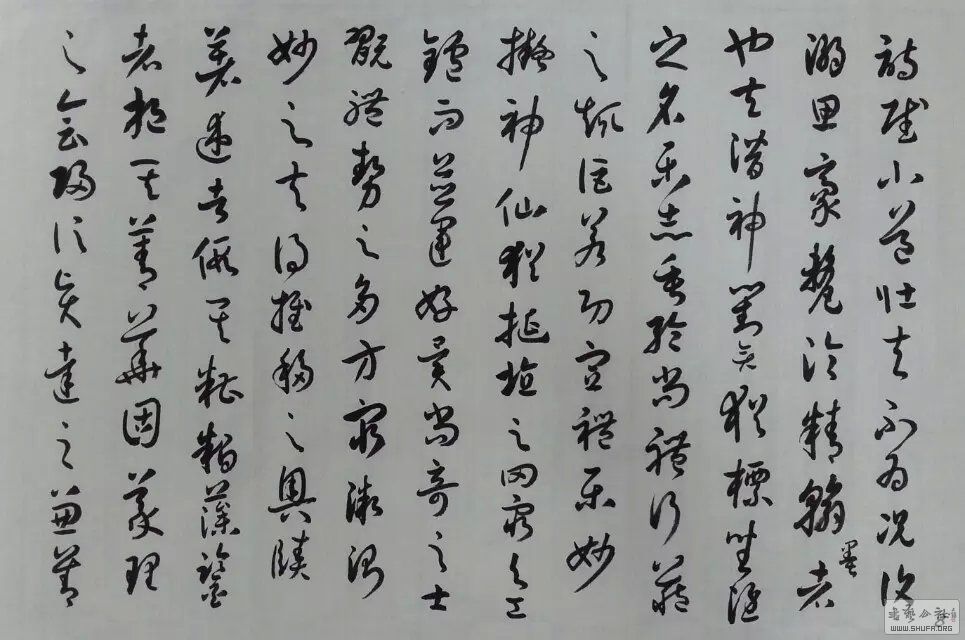 詩賦小道壯夫不為況復
溺思豪氂淪精翰墨者
也夫潛神對弈猶標坐隱
之名樂志垂綸尚體行藏
之趣詎若功宣禮樂妙
擬神仙猶埏埴之罔窮与工
鑪而並運好異尚奇之士
翫體勢之多方窮微測
妙之夫得推移之奧賾
著述者假其糟粕藻鑒
者挹其菁華固義理
之會歸信賢達之兼善
WWW.SHUFA.ORG